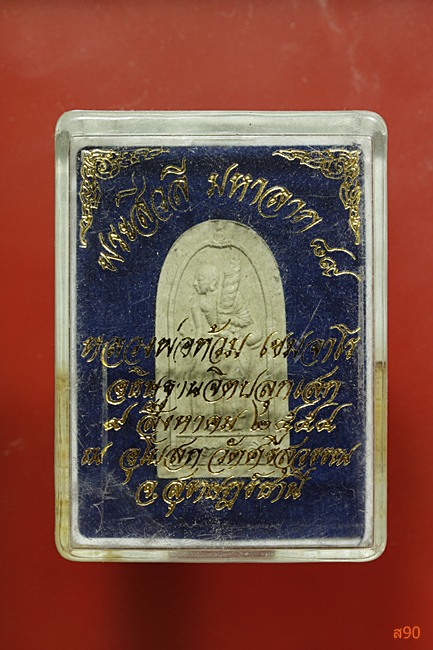 พระสิวลี มหาลาภ ๘๙
หลวงพ่อท้วม เขมจาโร
อธิษฐานจิตปลุกเสก
๙ สิงหาคม ๒๕๔๘
ณ อุโบสถ วัดศรีสุวรรณ
จ.สุราษฎร์ธานี
ส90